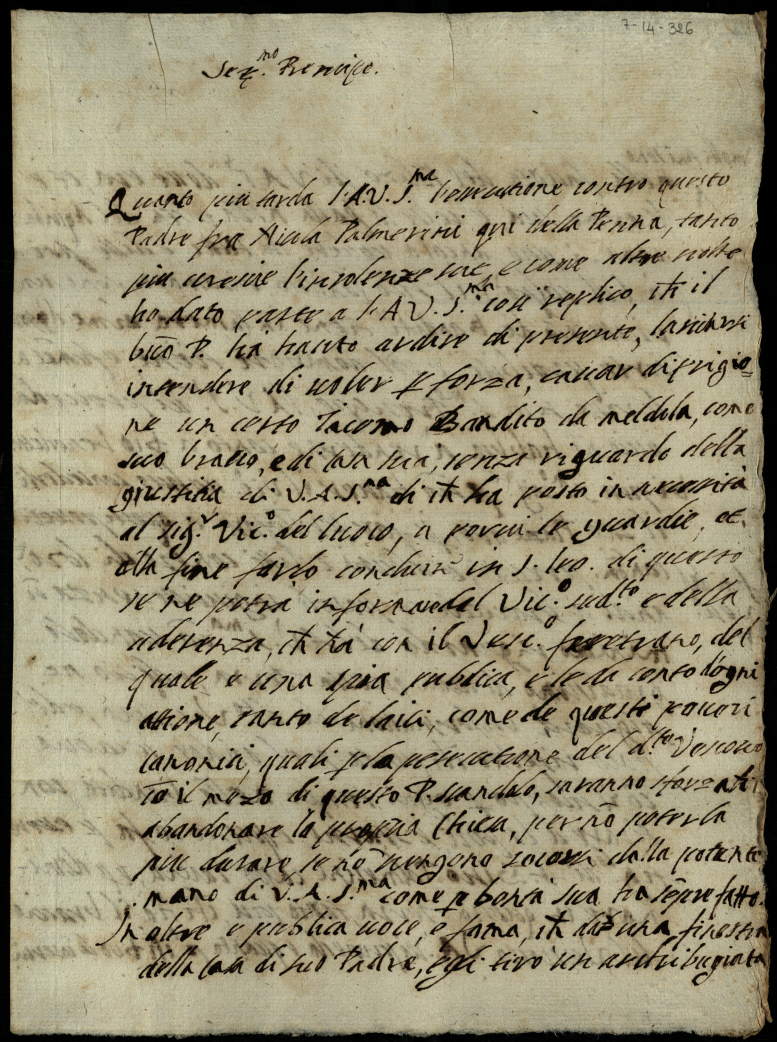 7-14-326
Ser.mo Prencipe.
Quanto piu tarda l'A.V.S.ma l'essecutione contro questo
Padre fra Nicola Palmerini qui della Penna, tanto
piu cresce l'insolenze sue, e come altre volte
ho dato parte a l'A V.S.ma cosi replico, ch il
buō P. ha hauto ardire di presente, lasciarsi
intendere di uoler p forza, cauar di prigio=
ne un certo Iacomo Bandito da Meldola, come
suo brauo, e di casa sua, senza riguardo della
giustitia di V.A.S.ma di ch ha posto in necessità
al sig.r Vic.o del luoco, a porui le guardie, et
alla fine farlo condurre in S. Leo. di questo
se ne potra informare dal Vic.o sud.to e della
aderenza, ch ha con il Vesc.o feretrano, del
quale e una spia publica, e le da conto d'ogni
attione, tanto de laici, come de questi poueri
canonici, quali p la persecutione del d.to Vescouo
cō il mezo di questo P. scandolo, saranno sforzati
abandonare la propria Chiesa, per nō poterla
piu durare, se nō uengono socorsi dalla potente
mano di V.A.S.ma come p bontà sua ha sēpre fatto.
In oltre e publica uoce, e fama, ch da una finestra
della casa di suo Padre, egli tirò un archibugiata